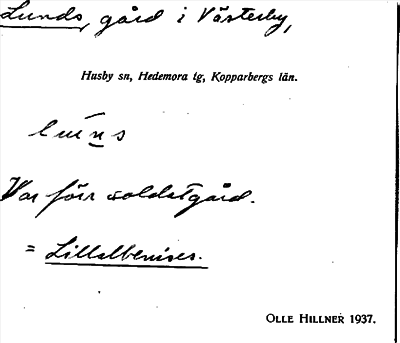 Lunds, gård i Västerby,
Husby sn, Hedemora tg, Kopparbergs län.
Var förr soldatgård.
= Lillalbenises.
OLLE HILLNER 1937.